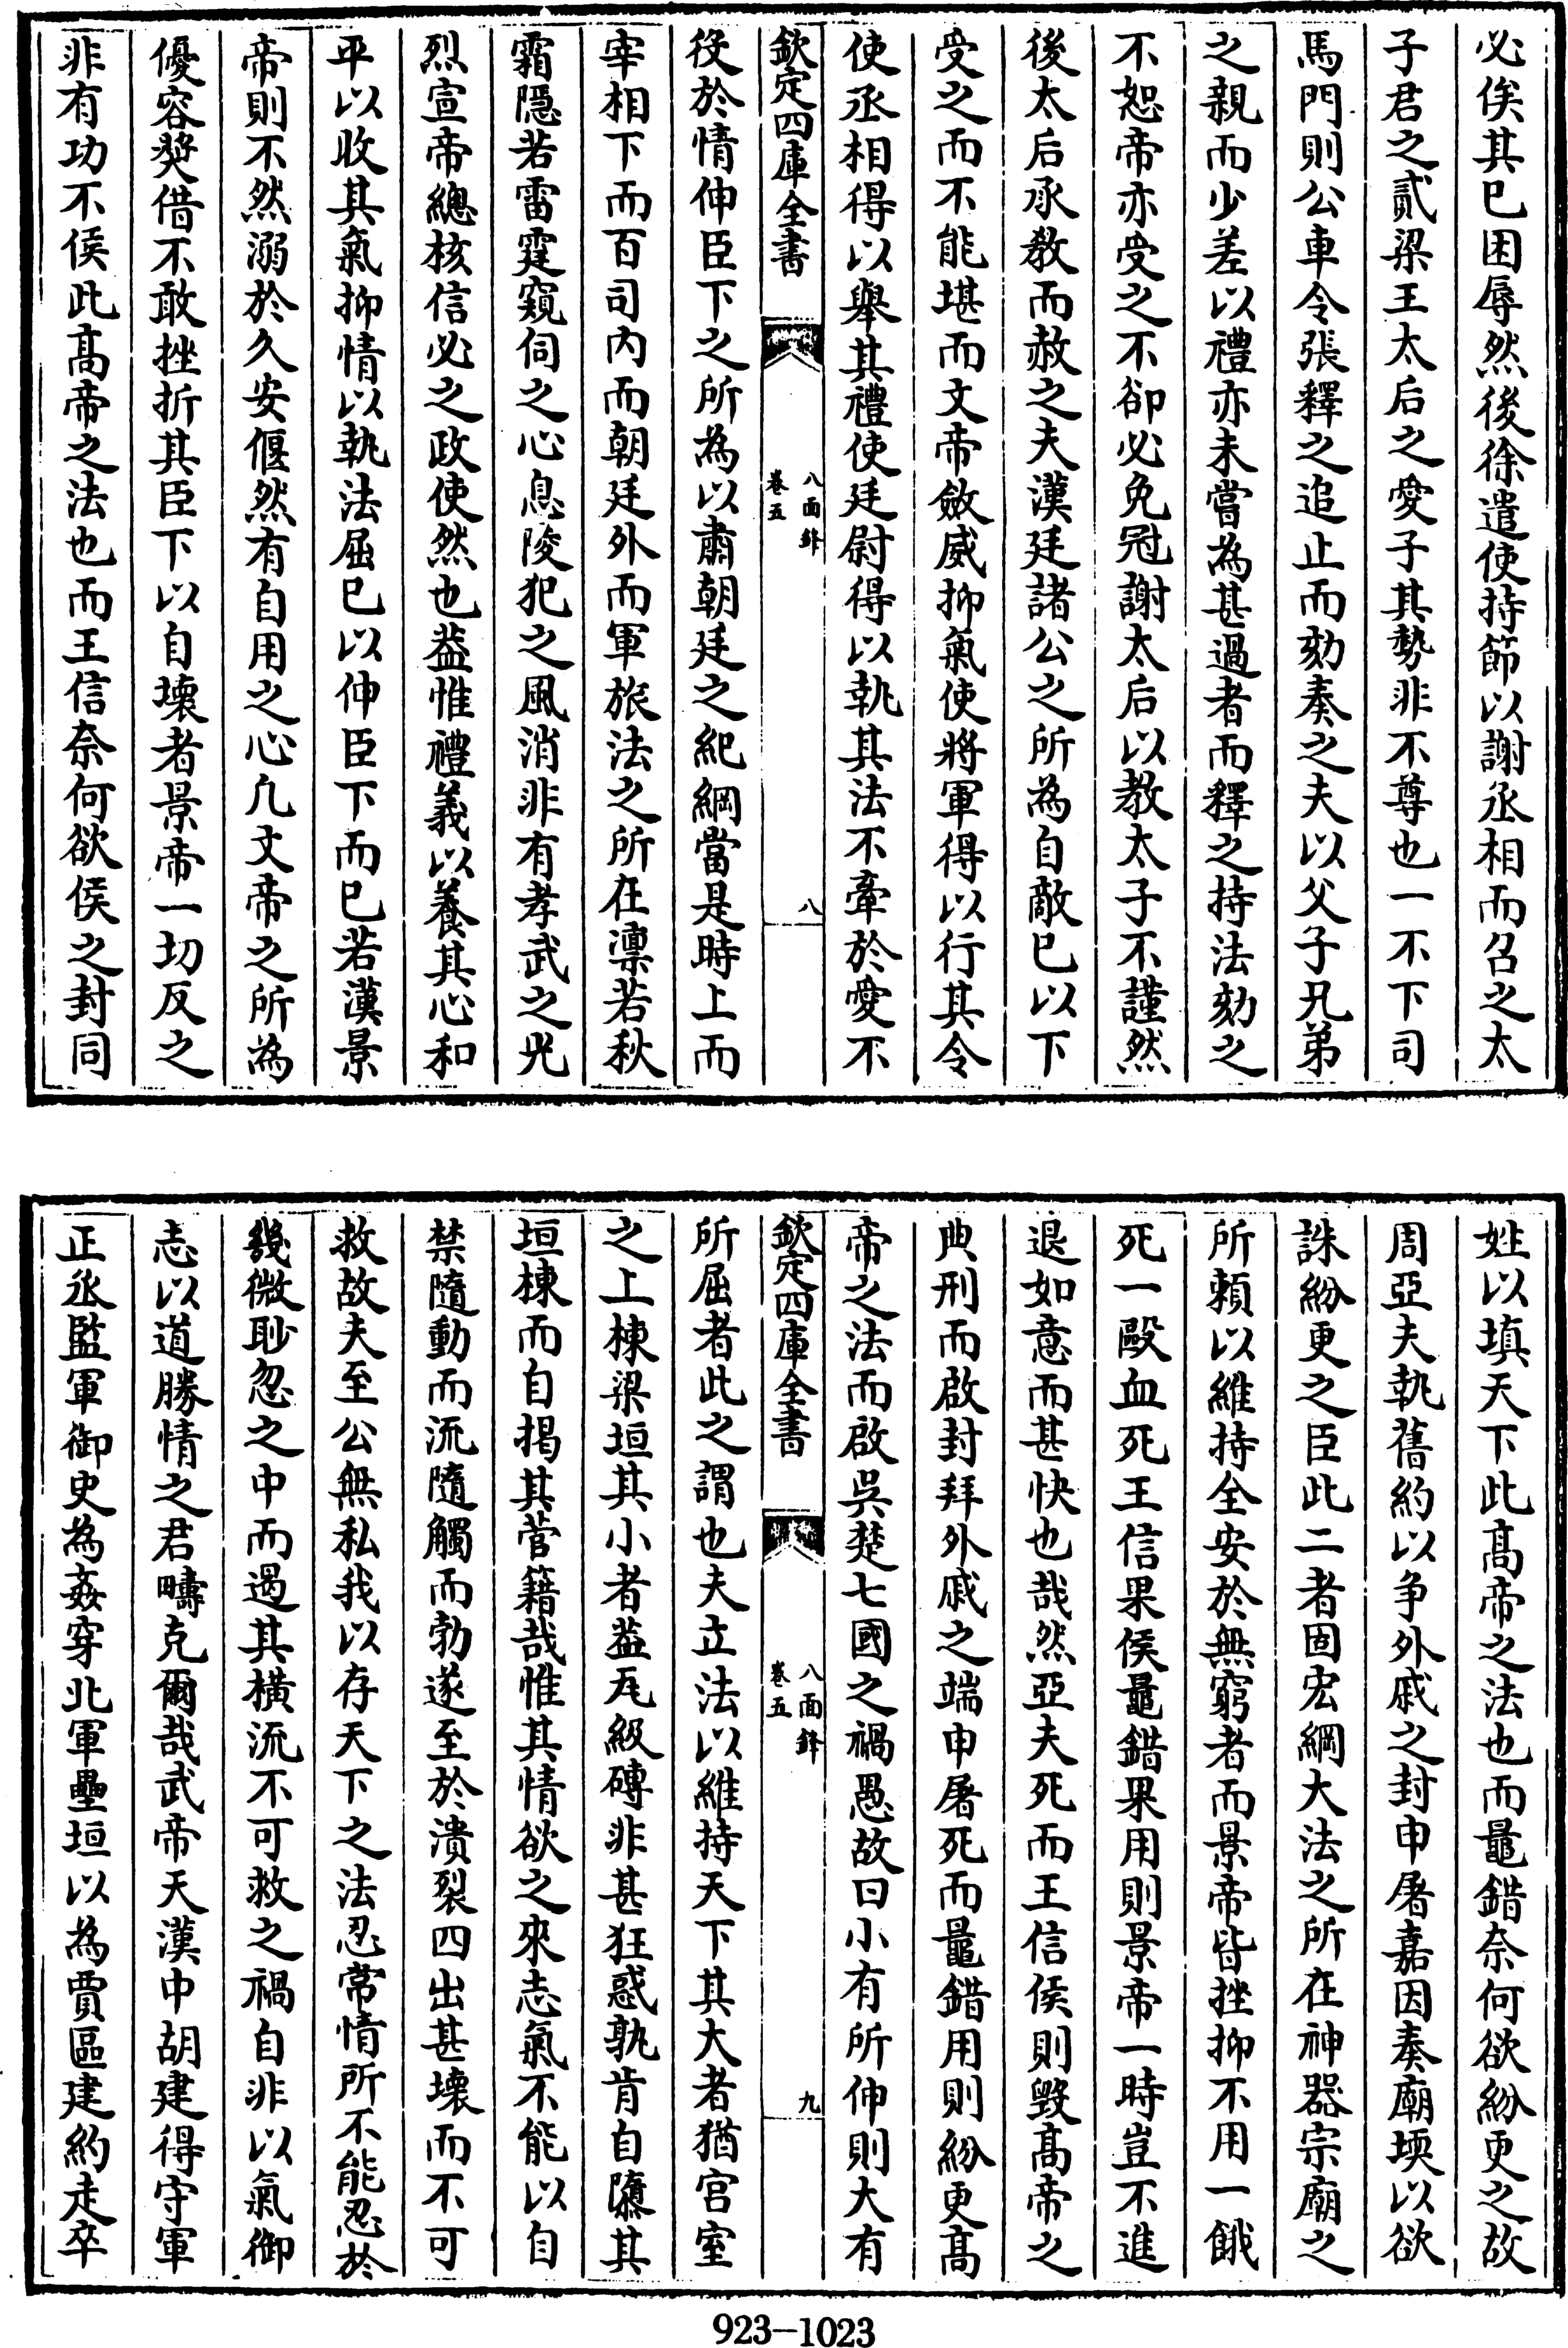 必俟其已困辱然後徐遣使持節以謝丞相而召之太
子君之貳梁王太后之愛子其勢非不尊也一不下司
馬門則公車令張釋之追止而劾奏之夫以父子兄弟
之親而少差以禮亦未嘗為甚過者而釋之持法劾之
不恕帝亦受之不卻必免冠謝太后以教太子不謹然
後太后承教而赦之夫漢廷諸公之所為自敵已以下
受之而不能堪而文帝斂威抑氣使將軍得以行其令
使丞相得以舉其禮使廷尉得以執其法不牽於愛不
欽定四庫全書
八面鋒
卷五
八
役於情伸臣下之所為以肅朝廷之紀綱當是時上而
宰相下而百司内而朝廷外而軍旅法之所在凛若秋
霜隱若雷霆窺伺之心息陵犯之風消非有孝武之光
烈宣帝總核信必之政使然也葢惟禮義以養其心和
平以收其氣抑情以執法屈已以伸臣下而已若漢景
帝則不然溺於久安偃然有自用之心凢文帝之所為
優容奬借不敢挫折其臣下以自壊者景帝一切反之
非有功不侯此髙帝之法也而王信奈何欲侯之封同
姓以填天下此髙帝之法也而鼂錯奈何欲紛更之故
周亞夫執舊約以争外戚之封申屠嘉因奏廟堧以欲
誅紛更之臣此二者固宏綱大法之所在神器宗廟之
所頼以維持全安於無窮者而景帝皆挫抑不用一餓
死一毆血死王信果侯鼂錯果用則景帝一時豈不進
退如意而甚快也哉然亞夫死而王信侯則毁髙帝之
典刑而啟封拜外戚之端申屠死而鼂錯用則紛更髙
帝之法而啟吳楚七國之禍愚故曰小有所伸則大有
欽定四庫全書
八面鋒
卷五
九
所屈者此之謂也夫立法以維持天下其大者猶宫室
之上棟梁垣其小者葢瓦級磚非甚狂惑孰肯自隳其
垣棟而自揭其菅籍哉惟其情欲之來志氣不能以自
禁隨動而流隨觸而勃遂至於潰裂四出甚壊而不可
救故夫至公無私我以存天下之法忍常情所不能忍於
幾微眇忽之中而遏其横流不可救之禍自非以氣御
志以道勝情之君疇克爾哉武帝天漢中胡建得守軍
正丞監軍御史為姦穿北軍壘垣以為賈區建約走卒
923-1023